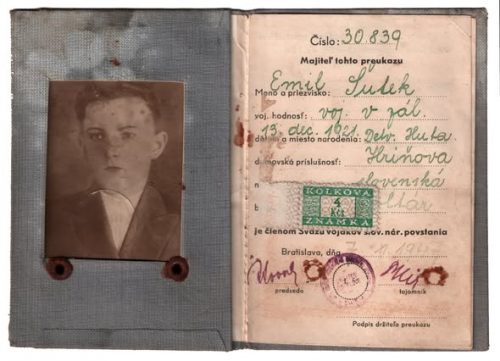 Číslo: 30.839
Majiteľ tohto preukazu
Emil Šufek
Meno a priezvisko:
voj. hodnosť: voj. v zál.
13. dec. 1921. Detv. Huta
dátum a miesto narodenia:
domovská príslušnosť: Hriňova
slovenská
KOLKOVÁ
4
Kčs
ZNÁMKA
je členom Sväzu vojakov slov. nár. povstania
Bratislava, dňa 7. 11. 194
predseda
tajomník
Podpis držiteľa preukazu